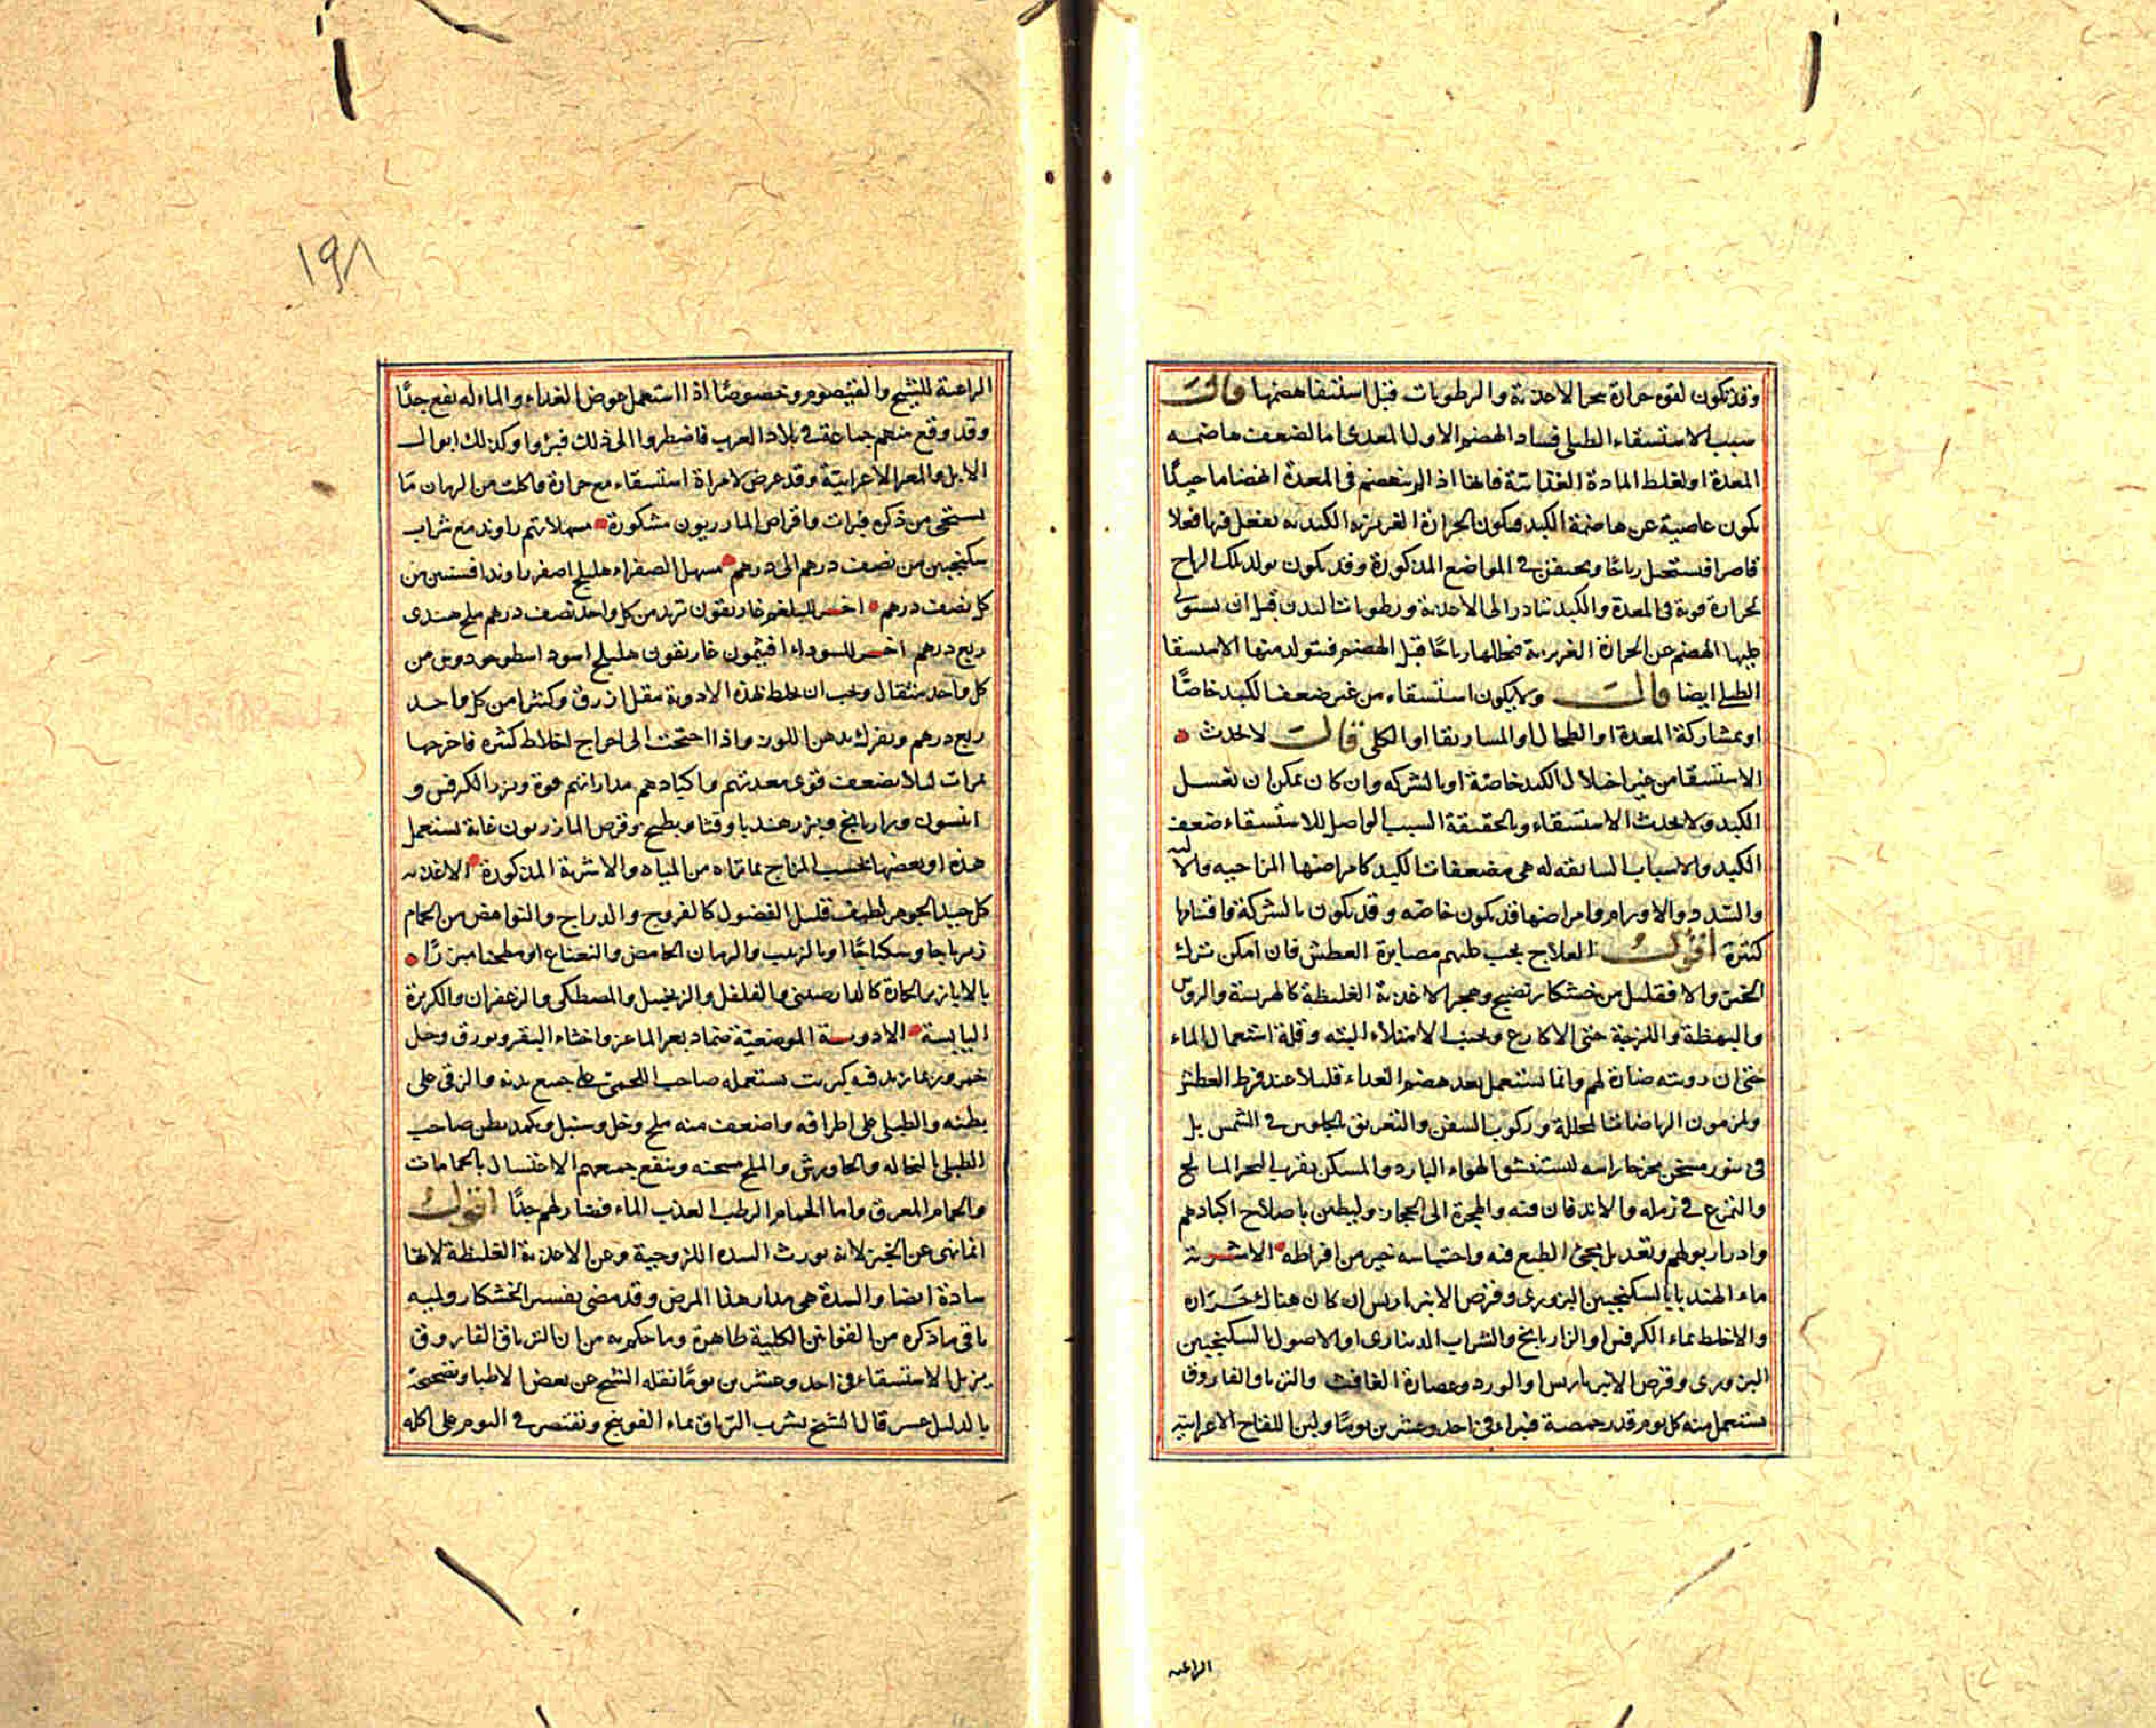 وقد تكون لقوة حرارة تبخر الاغذية والرطوبات قبل استيفا هضمها قال
سبب الاستسقاء الطبلى فساد الهضم الاول المعدى اما لضعف هاضمه
المعدة او لغلظ المادة الغذائية فانها اذا لم تنهضم فى المعدة انهضاما جيدًا
يكون عاصية عن هاضمة الكبد فيكون الحرارة الغريزية الكبدية تفعل فيها فعلا
قاصرا فتستحيل رياحًا ويحتقن فى المواضع المذكورة وقد يكون تولد تلك الرياح
لحرارة قوية فى المعدة والكبد تبادر الى الاغذية ورطوبات البدن قبل ان يستولى
عليها الهضم عن الحرارة الغريزية فتحللها رياحًا قبل الهضم فتتولد منها الاستسقا
الطبلى ايضا قال ولا يكون استسقاء من غير ضعف الكبد خاصًّا
او بمشاركة المعدة او الطحال او الماساريقا او الكلى قال لا يحدث
الاستسقا من غير اختلال الكبد خاصّة او بالشركه وان كان يمكن ان تعتل
الكبد ولا يحدث الاستسقاء وبالحقيقة السبب الواصل للاستسقاء ضعف
الكبد والاسباب السابقه له هى مضعفات الكبد كامراضها المزاجيه والالية
والسدد والاورام وامراضها قد يكون خاصّه وقد يكون بالشركة واقسامها
كثيرة اقول العلاج يجب عليهم مصابرة العطش فان امكن ترك
الخبز والا فقليل من خشكار نضيج وهجر الاغذية الغليظة كالهريسة والروس
والبهطة واللزجة حتى الاكارع وتجنب الامتلاء البته وقلة استعمال الماء
حتى ان رويته ضارة لهم وانما يستعمل بعد هضم الغداء قليلا عند فرط العطش
ويلزمون الرياضات المحللة وركوب السفن والتعريق بالجلوس فى الشمس بل
فى تنور مسخن مخرجا راسه ليستنشق الهواء البارد والمسكن بقرب البحر المالح
والتمرغ فى رمله والاندفان فيه والهجرة الى الحجاز وليعتن باصلاح اكبادهم
وادرار بولهم وتعديل مجئ الطبع فيه واحتباسه خير من افراطه الاشربة
ماء الهندبا بالسكنجبين البزورى وقرص الانبرباريس ان كان هناك حرارة
والاخلط بماء الكرفس او الرازيانج والشراب الدينارى او الاصول بالسكنجبين
البزورى وقرص الانبرباريس او الورد وعصارة الغافت والترياق الفاروق
يستعمل منه كل يوم قدر حمصة فيبراء فى احد وعشرين يومًا ولبن اللقاح الاعرابية
الراعية
١٩٨
الراعية للشيح والقيصوم وخصوصًا اذا استعمل عوض الغداء والماء له نفع جدًّا
وقد وقع منهم جماعة فى بلاد العرب فاضطروا الى ذلك فبرؤا وكذلك ابوال
الابل والمعز الاعرابيّة وقد عرض لامراة استسقاء مع حرارة فاكلت من الرمان مَا
يستحى من ذكره فبرات واقراص المازريون مشكورة مسهلاتهم راوند مع شراب
سكنجبين من نصف درهم الى درهم مسهل الصفراء هليلج اصفر راوند افسنتين من
كل نصف درهم اخر للبلغم غاريقون تربد من كل واحد نصف درهم ملح هندى
ربع درهم اخر للسوداء افتيمون غاريقون هليلج اسود اسطوخودوس من
كل واحد مثقال ويجب ان يخلط بهذه الادوية مقل ازرق وكثيرا من كل واحد
ربع درهم ويفرك بدهن اللوز واذا احتجت الى اخراج اخلاط كثيره فاخرجها
بمرات لئلا تضعف قوى معدتهم واكبادهم مدراتهم فوة وبزر الكرفس و
انيسون ورازيانج وبزر هندبا وقثا وبطيخ وقرص المازريون غاية تستعمل
هذه او بعضها بحسب المزاج بما تراه من المياه والاشربة المذكورة الاغذيه
كل جيد الجوهر لطيف قليل الفضول كالفروج والدراج والنواهض من الحمام
زيرباجا وسكباجًا او بالزبيب والرمان الحامض والنعناع او مطجنا مبزرًا
بالابازير الحارة كالدارصينى والفلفل والزنجبيل والمصطكى والزعفران والكزبرة
اليابسة الادوية الموضعيّة ضماد بعر الماعز واخثاء البقر وبورق وخل
خمر وربما زيد فيه كبريت يستعمله صاحب اللحمى على جميع بدنه والزقى على
بطنه والطبلى على اطرافه واضعف منه ملح وخل وسنبل ويكمد بطن صاحب
الطبلى بالنخاله والجاورش والملح مسخنه وينفع جميعهم الاغتسال بالحمامات
والحمام المعرق واما الحمام الرطب العذب الماء فضار لهم جدًّا اقول
انما نهى عن الخبز لانه يورث السده اللزوجية وعن الاغذية الغليظة لانها
سادة ايضا والسدة هى مدار هذا المرض وقد مضى تفسير الخشكار وليه
باقى ما ذكره من القوانين الكلية ظاهرة وما حكم به من ان الترياق الفاروق
يزيل الاستسقاء فى احد وعشرين يومًا نقله الشيخ عن بعض الاطبا وتصحيحه
بالدليل عسر قال الشيخ يشرب الترياق بماء الفوتنج ويقتصر فى اليوم على اكله